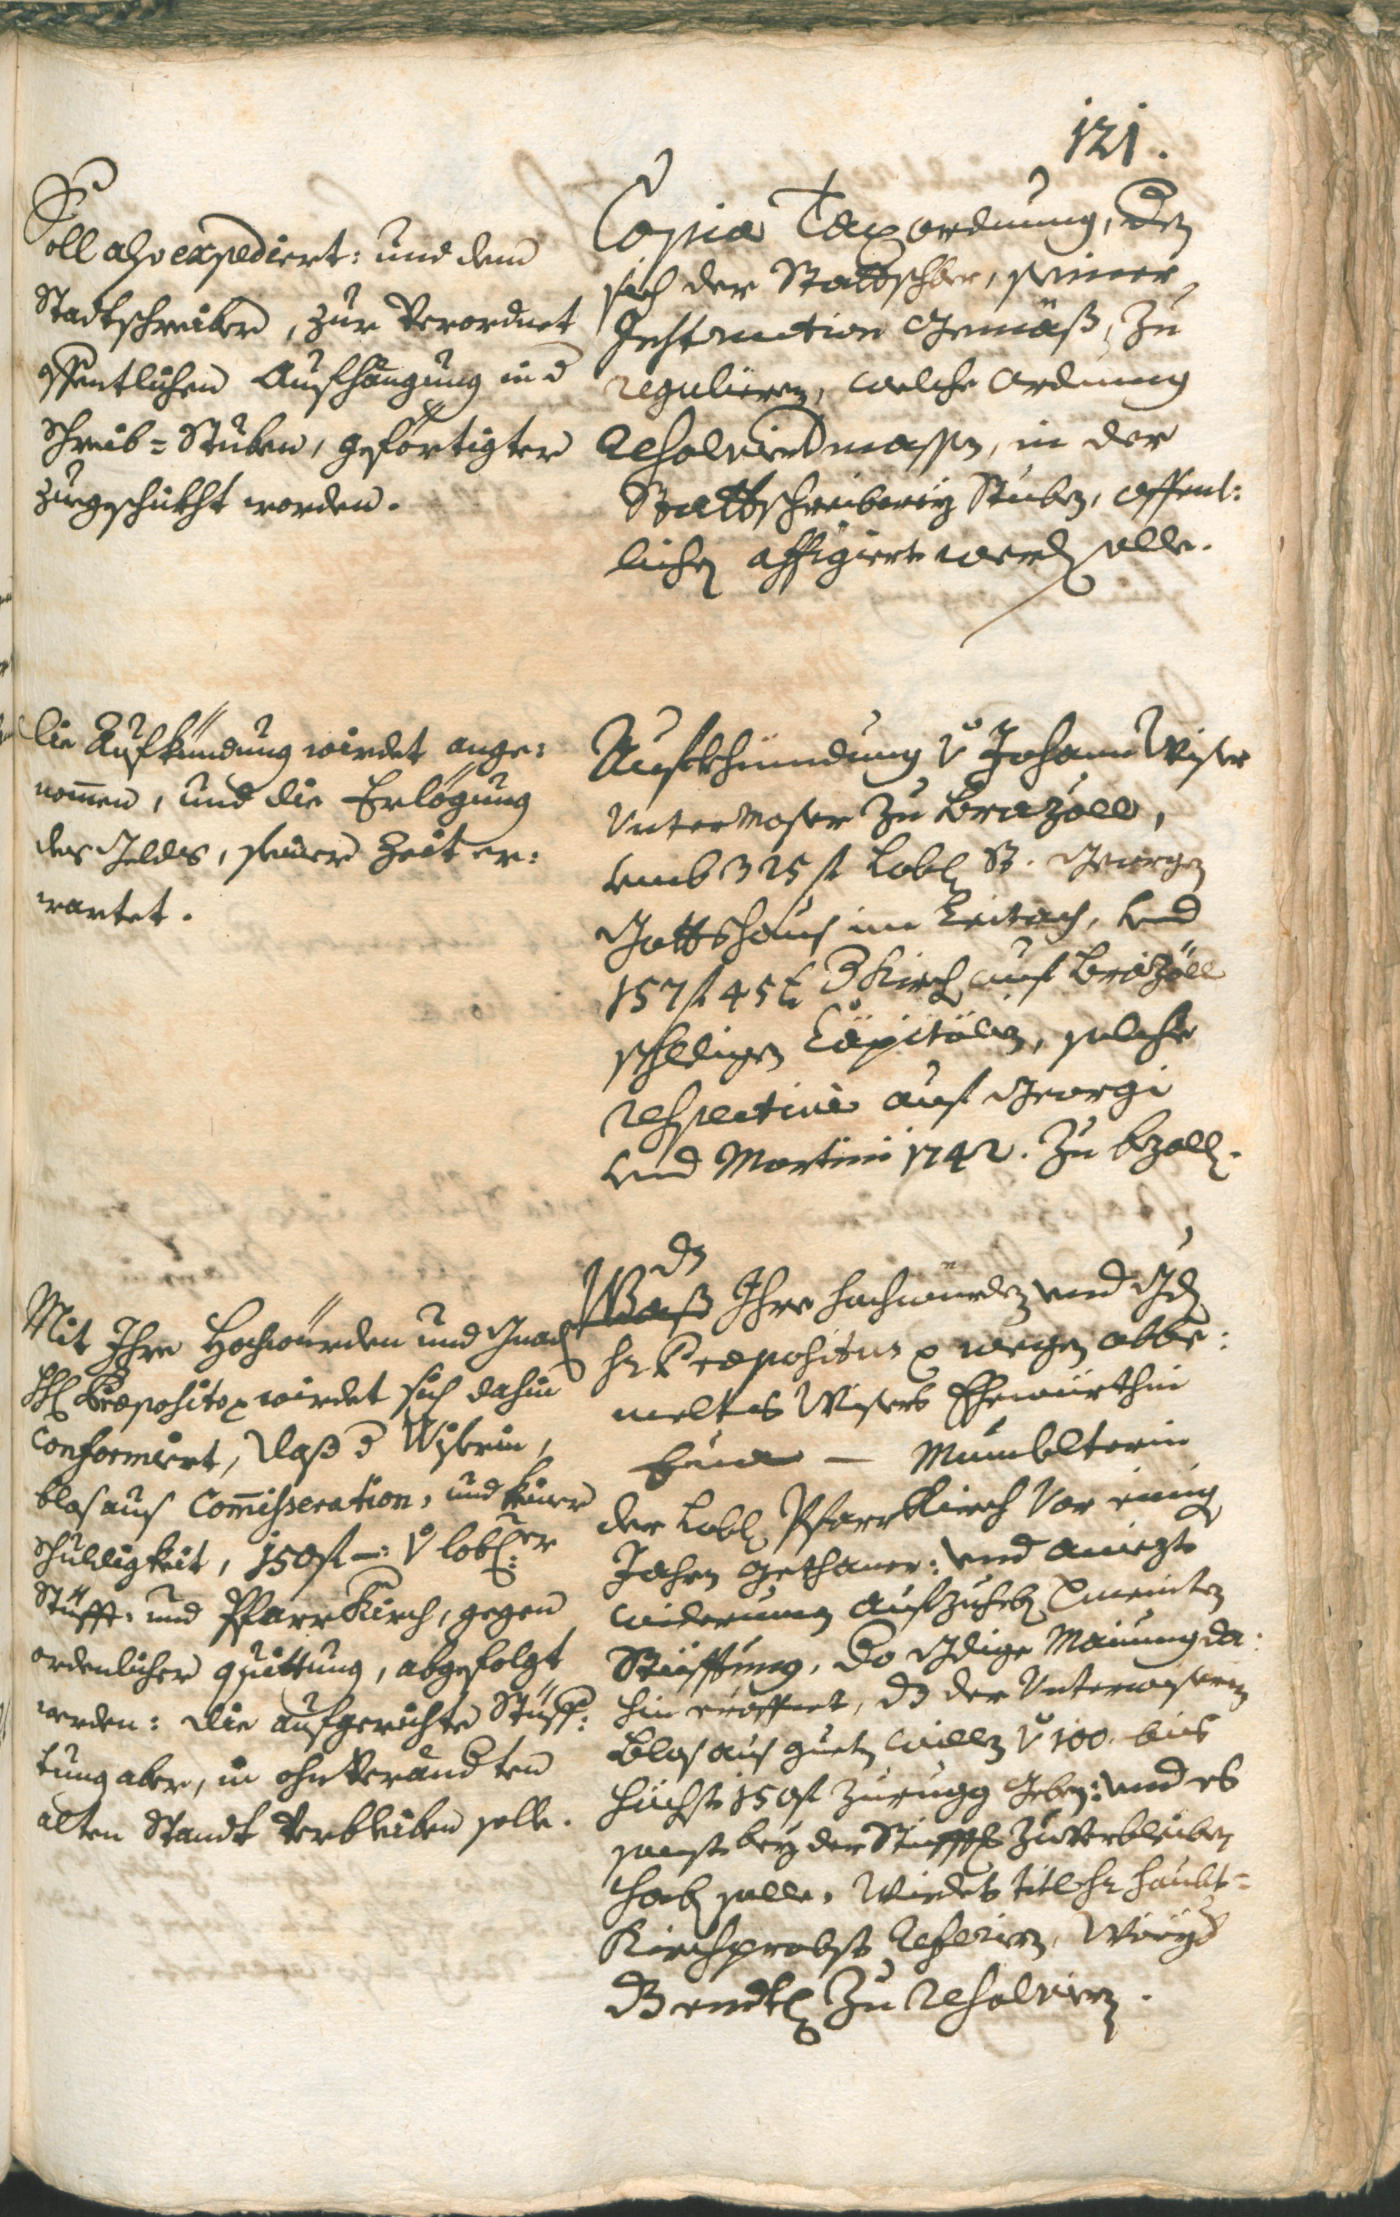 121.
Soll also expediert: und dem
Stadtschreiber, zur Verordnet
offentlichen Aufhängung in d
Schreib=Stuben, gefertigter
zuegschükht werden.
Copia Taxordnung, der
sich der Stattschber, seiner
Instruction Gemäß, zu
regulieren, welche ordnung
resolviertermassen, in der
Stattschreiberey Stuben, offent:
lichen affigiert werden solle.
Die Aufkündung wirdet ange:
nommen, und die Erlögung
des Gelds, seiner Zeit er:
wartet.
Aufkhündung v Johann Wiser
Untermoser zu Brazoll,
umb 325 f Lobl St. Georgen
Gottshaus im Leitach, und
157 f 45 x d Kirch auf Brazöll
schldigen Capitalien, solche
respective auf Georgi
und Martini 1742. zu bezalln.
Mit Ihro Hochwürden und Gnad
Hl Præposito wirdet sich dahin
conformiert, daß d Wiserin,
blos aus Commisseration, und keiner
schuldigkeit, 150 f —: v lobl:er
Stüfft: und PfarrKirch, gegen
ordenlicher quittung, abgefolgt
werden: die aufgerichte Stüff:
tung aber, in ohnverändten
alten Standt verbleiben solle.
dz
Waß Ihro hochwürden und Gdn
hr Præpositus wegen obbe:
melt Wisers Ehewürthin
Eua — Mumelterin
der Lobl PfarrKirch vor einig
Jahren gethaner: und aniezt
widerumb aufzuheben vermeinten
Stüfftung, do Gdige Mainung da:
hin eröffnet, dz der Untermoserin
blos aus guten willen v 100. bis
höchst 150 f zurugg geben: und es
sonst bey der Stüfft zuverbleiben
haben solle, Wirdet titl hr haubt=
Kirchprobst referieren,
dz endtl zu resolvieren.